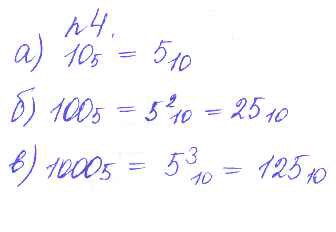 n4.
а) 10₅ = 5₁₀
б) 100₅ = 5²₁₀ = 25₁₀
в) 1000₅ = 5³₁₀ = 125₁₀